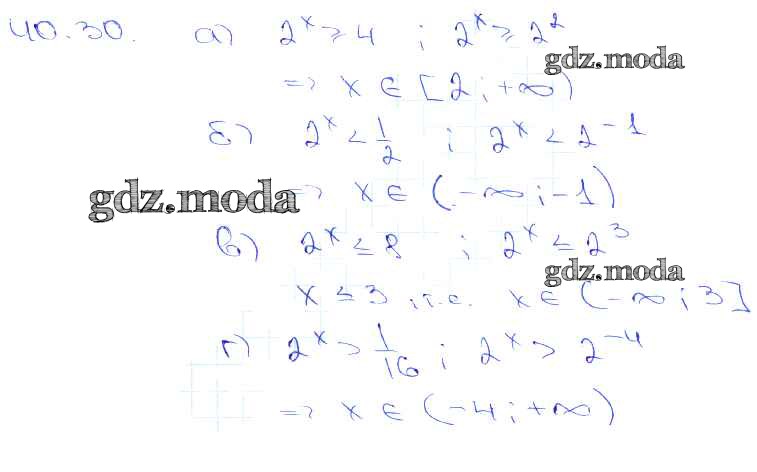 40.30. а) 2^x ≥ 4 ; 2^x ≥ 2^2
gdz.moda
=> x ∈ [2; +∞)
б) 2^x < 1/2 ; 2^x < 2^-1
gdz.moda => x ∈ (-∞; -1)
в) 2^x ≤ 8 ; 2^x ≤ 2^3
gdz.moda
x ≤ 3, т.е. x ∈ (-∞; 3]
г) 2^x > 1/16 ; 2^x > 2^-4
=> x ∈ (-4; +∞)